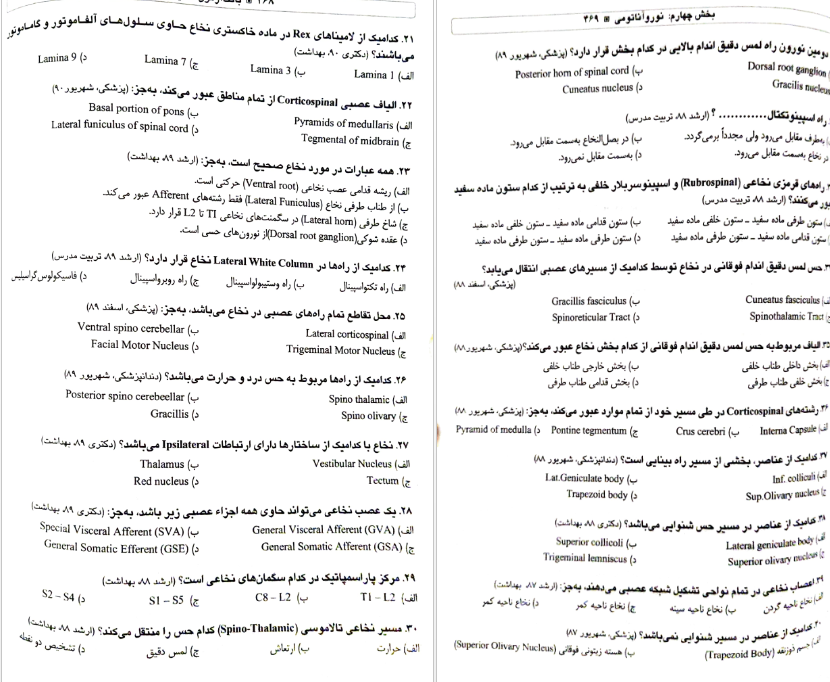 ۲۱. کدامیک از لامیناهای Rex در ماده خاکستری نخاع حاوی سلول‌های آلفاموتور و گاماموتور
می‌باشند؟ (دکتری ۹۰، بهداشت)
الف) Lamina 1 ب) Lamina 3 ج) Lamina 7 د) Lamina 9
۲۲. الیاف عصبی Corticospinal از تمام مناطق عبور می‌کند، به‌جز: (پزشکی، شهریور ۹۰)
الف) Pyramids of medullaris ب) Basal portion of pons
ج) Tegmental of midbrain د) Lateral funiculus of spinal cord
۲۳. همه عبارات در مورد نخاع صحیح است، به‌جز: (ارشد ۸۹، بهداشت)
الف) ریشه قدامی عصب نخاعی (Ventral root) حرکتی است.
ب) از طناب طرفی نخاع (Lateral Funiculus) فقط رشته‌های Afferent عبور می‌کند.
ج) شاخ طرفی (Lateral horn) در سگمنت‌های نخاعی T1 تا L2 قرار دارد.
د) عقده شوکی(Dorsal root ganglion)از نورون‌های حسی است.
۲۴. کدامیک از راه‌ها در Lateral White Column نخاع قرار دارد؟ (ارشد ۸۹، تربیت مدرس)
الف) راه تکتواسپینال ب) راه وستیبولواسپینال ج) راه روبرواسپینال د) فاسیکولوس گراسیلیس
۲۵. محل تقاطع تمام راه‌های عصبی در نخاع می‌باشد، به‌جز: (پزشکی، اسفند ۸۹)
الف) Lateral corticospinal ب) Ventral spino cerebellar
ج) Trigeminal Motor Nucleus د) Facial Motor Nucleus
۲۶. کدامیک از راه‌ها مربوط به حس درد و حرارت می‌باشد؟ (دندانپزشکی، شهریور ۸۹)
الف) Spino thalamic ب) Posterior spino cerebellar
ج) Spino olivary د) Gracillis
۲۷. نخاع با کدامیک از ساختارها دارای ارتباطات Ipsilateral می‌باشد؟ (دکتری ۸۹، بهداشت)
الف) Vestibular Nucleus ب) Thalamus
ج) Tectum د) Red nucleus
۲۸. یک عصب نخاعی می‌تواند حاوی همه اجزاء عصبی زیر باشد، به‌جز: (دکتری ۸۹، بهداشت)
الف) General Visceral Afferent (GVA) ب) Special Visceral Afferent (SVA)
ج) General Somatic Afferent (GSA) د) General Somatic Efferent (GSE)
۲۹. مرکز پاراسمپاتیک در کدام سگمان‌های نخاعی است؟ (ارشد ۸۸، بهداشت)
الف) T1 – L2 ب) C8 – L2 ج) S1 – S5 د) S2 – S4
۳۰. مسیر نخاعی تالاموسی (Spino-Thalamic) کدام حس را منتقل می‌کند؟ (ارشد ۸۸، بهداشت)
الف) حرارت ب) ارتعاش ج) لمس دقیق د) تشخیص دو نقطه
بخش چهارم: نوروآناتومی ۴۶۹
دومین نورون راه لمس دقیق اندام بالایی در کدام بخش قرار دارد؟ (پزشکی، شهریور ۸۹)
Dorsal root ganglion ب) Posterior horn of spinal cord
Gracilis nucleus د) Cuneatus nucleus
راه اسپینوتکتال............ ؟ (ارشد ۸۸، تربیت مدرس)
به‌طرف مقابل می‌رود ولی مجدداً برمی‌گردد. ب) در بصل‌النخاع به‌سمت مقابل می‌رود.
در نخاع به‌سمت مقابل می‌رود. د) به‌سمت مقابل نمی‌رود.
راه‌های قرمزی نخاعی (Rubrospinal) و اسپینوسربلار خلفی به ترتیب از کدام ستون ماده سفید
عبور می‌کنند؟ (ارشد ۸۸، تربیت مدرس)
ستون طرفی ماده سفید ـ ستون خلفی ماده سفید ب) ستون قدامی ماده سفید ـ ستون خلفی ماده سفید
ستون قدامی ماده سفید ـ ستون طرفی ماده سفید د) ستون طرفی ماده سفید ـ ستون طرفی ماده سفید
حس لمس دقیق اندام فوقانی در نخاع توسط کدامیک از مسیرهای عصبی انتقال می‌یابد؟
(پزشکی، اسفند ۸۸)
Cuneatus fasciculus ب) Gracillis fasciculus
Spinothalamic Tract د) Spinoreticular Tract
۳۵. الیاف مربوط‌به حس لمس دقیق اندام فوقانی از کدام بخش نخاع عبور می‌کند؟(پزشکی، شهریور ۸۸)
الف) بخش داخلی طناب خلفی ب) بخش خارجی طناب خلفی
ج) بخش خلفی طناب طرفی د) بخش قدامی طناب طرفی
۳۶. رشته‌های Corticospinal در طی مسیر خود از تمام موارد عبور می‌کند، به‌جز: (پزشکی، شهریور ۸۸)
الف) Interna Capsule ب) Crus cerebri ج) Pontine tegmentum د) Pyramid of medulla
۳۷. کدامیک از عناصر، بخشی از مسیر راه بینایی است؟ (دندانپزشکی، شهریور ۸۸)
الف) Inf. colliculi ب) Lat.Geniculate body
ج) Sup.Olivary nucleus د) Trapezoid body
۳۸. کدامیک از عناصر در مسیر حس شنوایی می‌باشد؟ (دکتری ۸۸، بهداشت)
الف) Lateral geniculate body ب) Superior collicoli
ج) Superior olivary nucleus د) Trigeminal lemniscus
۳۹. اعصاب نخاعی در تمام نواحی تشکیل شبکه عصبی می‌دهند، به‌جز: (ارشد ۸۷، بهداشت)
الف) نخاع ناحیه گردن ب) نخاع ناحیه سینه ج) نخاع ناحیه کمر د) نخاع ناحیه کمر
۴۰. کدامیک از عناصر در مسیر شنوایی نمی‌باشد؟ (پزشکی، شهریور ۸۷)
الف) جسم ذوزنقه (Trapezoid Body) ب) هسته زیتونی فوقانی (Superior Olivary Nucleus)